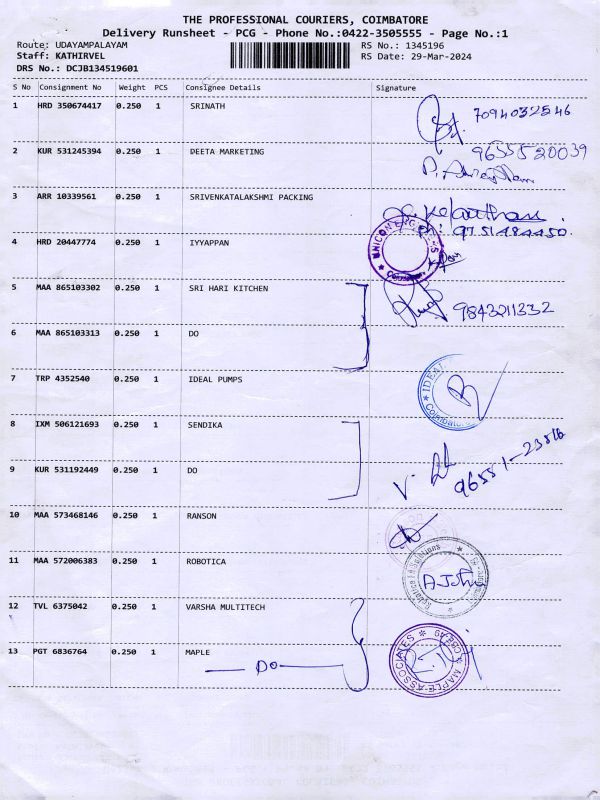 THE PROFESSIONAL COURIERS, COIMBATORE
Delivery Runsheet - PCG - Phone No.:0422-3505555 - Page No.:1
Route: UDAYAMPALAYAM RS No.: 1345196
Staff: KATHIRVEL RS Date: 29-Mar-2024
DRS No.: DCJB134519601
S No Consignment No Weight PCS Consignee Details Signature
1 HRD 350674417 0.250 1 SRINATH 7094032546
2 KUR 531245394 0.250 1 DEETA MARKETING 9655520039
3 ARR 10339561 0.250 1 SRIVENKATALAKSHMI PACKING
Ph: 9751484450.
4 HRD 20447774 0.250 1 IYYAPPAN
5 MAA 865103302 0.250 1 SRI HARI KITCHEN 9843211332
6 MAA 865103313 0.250 1 DO
7 TRP 4352540 0.250 1 IDEAL PUMPS IDEAL Coimbatore
8 IXM 506121693 0.250 1 SENDIKA
9 KUR 531192449 0.250 1 DO
10 MAA 573468146 0.250 1 RANSON
11 MAA 572006383 0.250 1 ROBOTICA
12 TVL 6375042 0.250 1 VARSHA MULTITECH
13 PGT 6836764 0.250 1 MAPLE MAPLE ASSOCIATES
DO